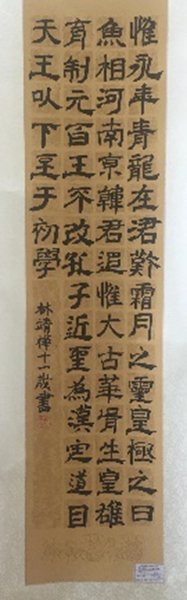 惟永平青龍在涒歎霜月之靈皇極之日
魚相河南京韓君追惟大古華胥生皇雄
育制元百王不改孔子近聖為漢定道自
天王以下至于初學
林靖樺十一歲書